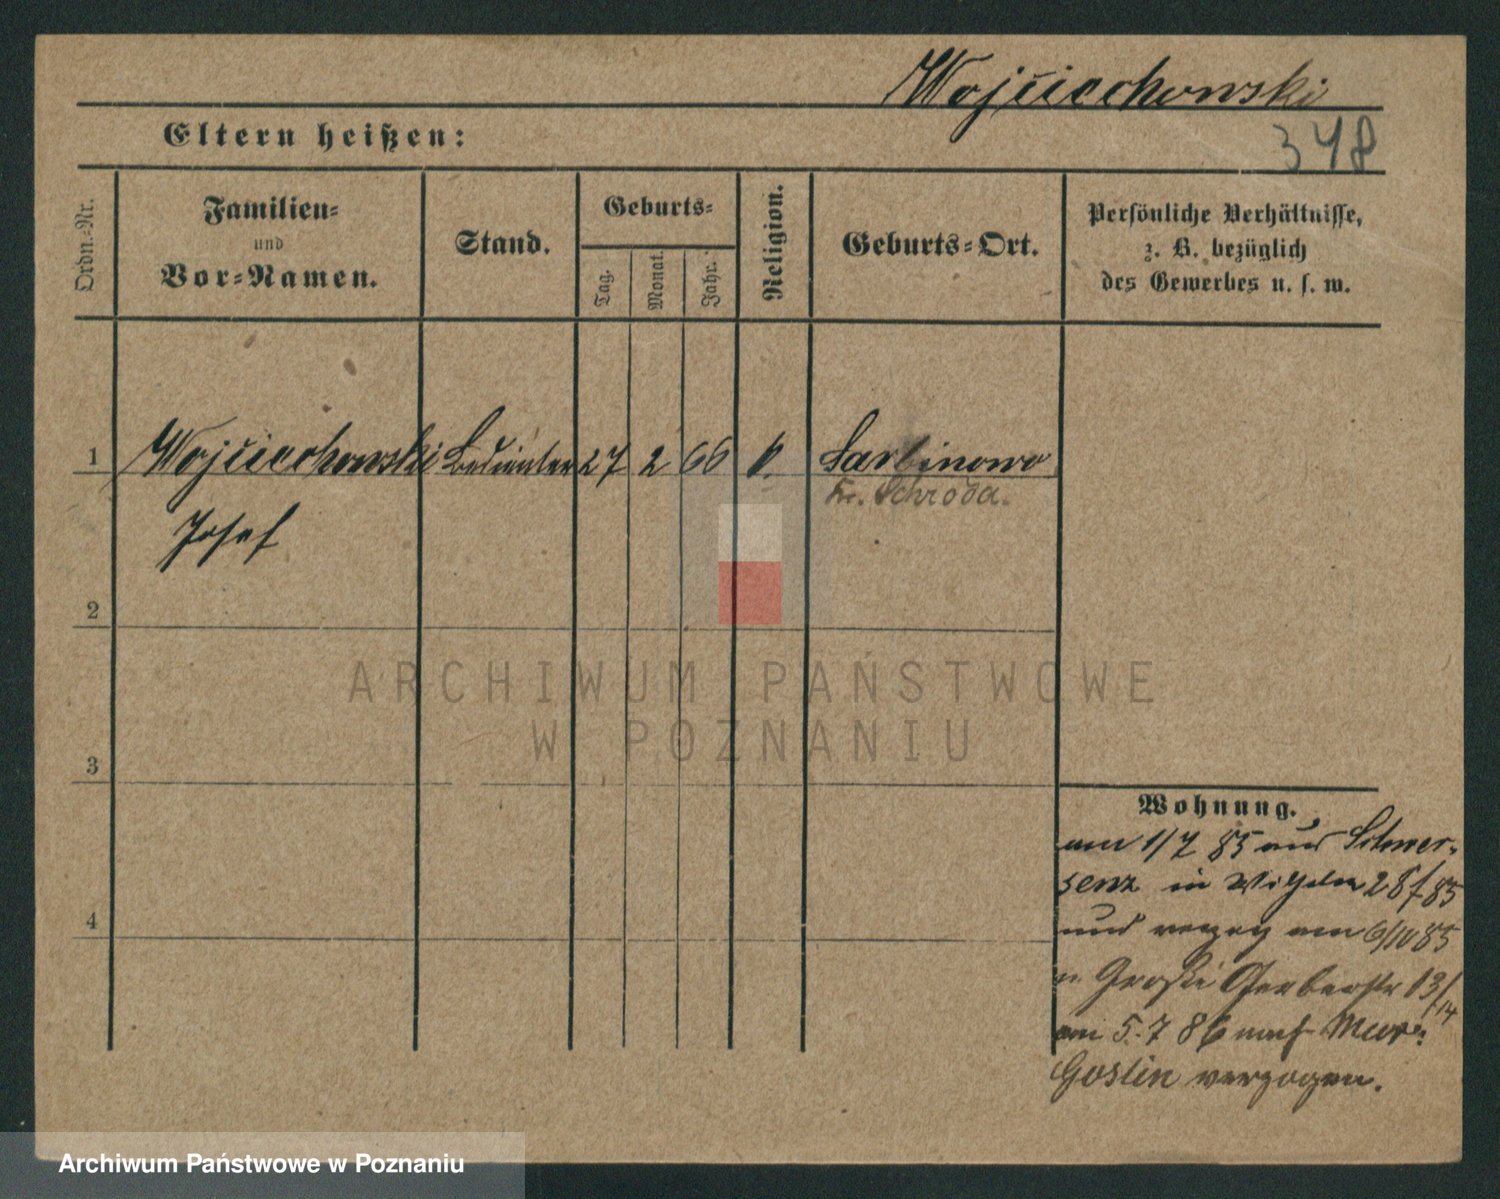 Wojciechowski
Eltern heißen:
348
Ordn.-Nr.
Familien-
und
Vor-Namen.
Stand.
Geburts-
Tag.
Monat.
Jahr.
Religion.
Geburts-Ort.
Persönliche Verhältnisse,
z. B. bezüglich
des Gewerbes u. s. w.
1 Wojciechowski Bedienter 27 2 66 k. Sarbinowo
Kr. Schroda.
Josef
2
3
4
ARCHIWUM PAŃSTWOWE
W POZNANIU
Wohnung.
am 1/7 85 aus Schwer-
senz in Wilhelm 28/85
und verzog am 6/10 85
n Große Gerberstr 13/14
am 5.7 86 nach Mur:
Goslin verzogen.
Archiwum Państwowe w Poznaniu